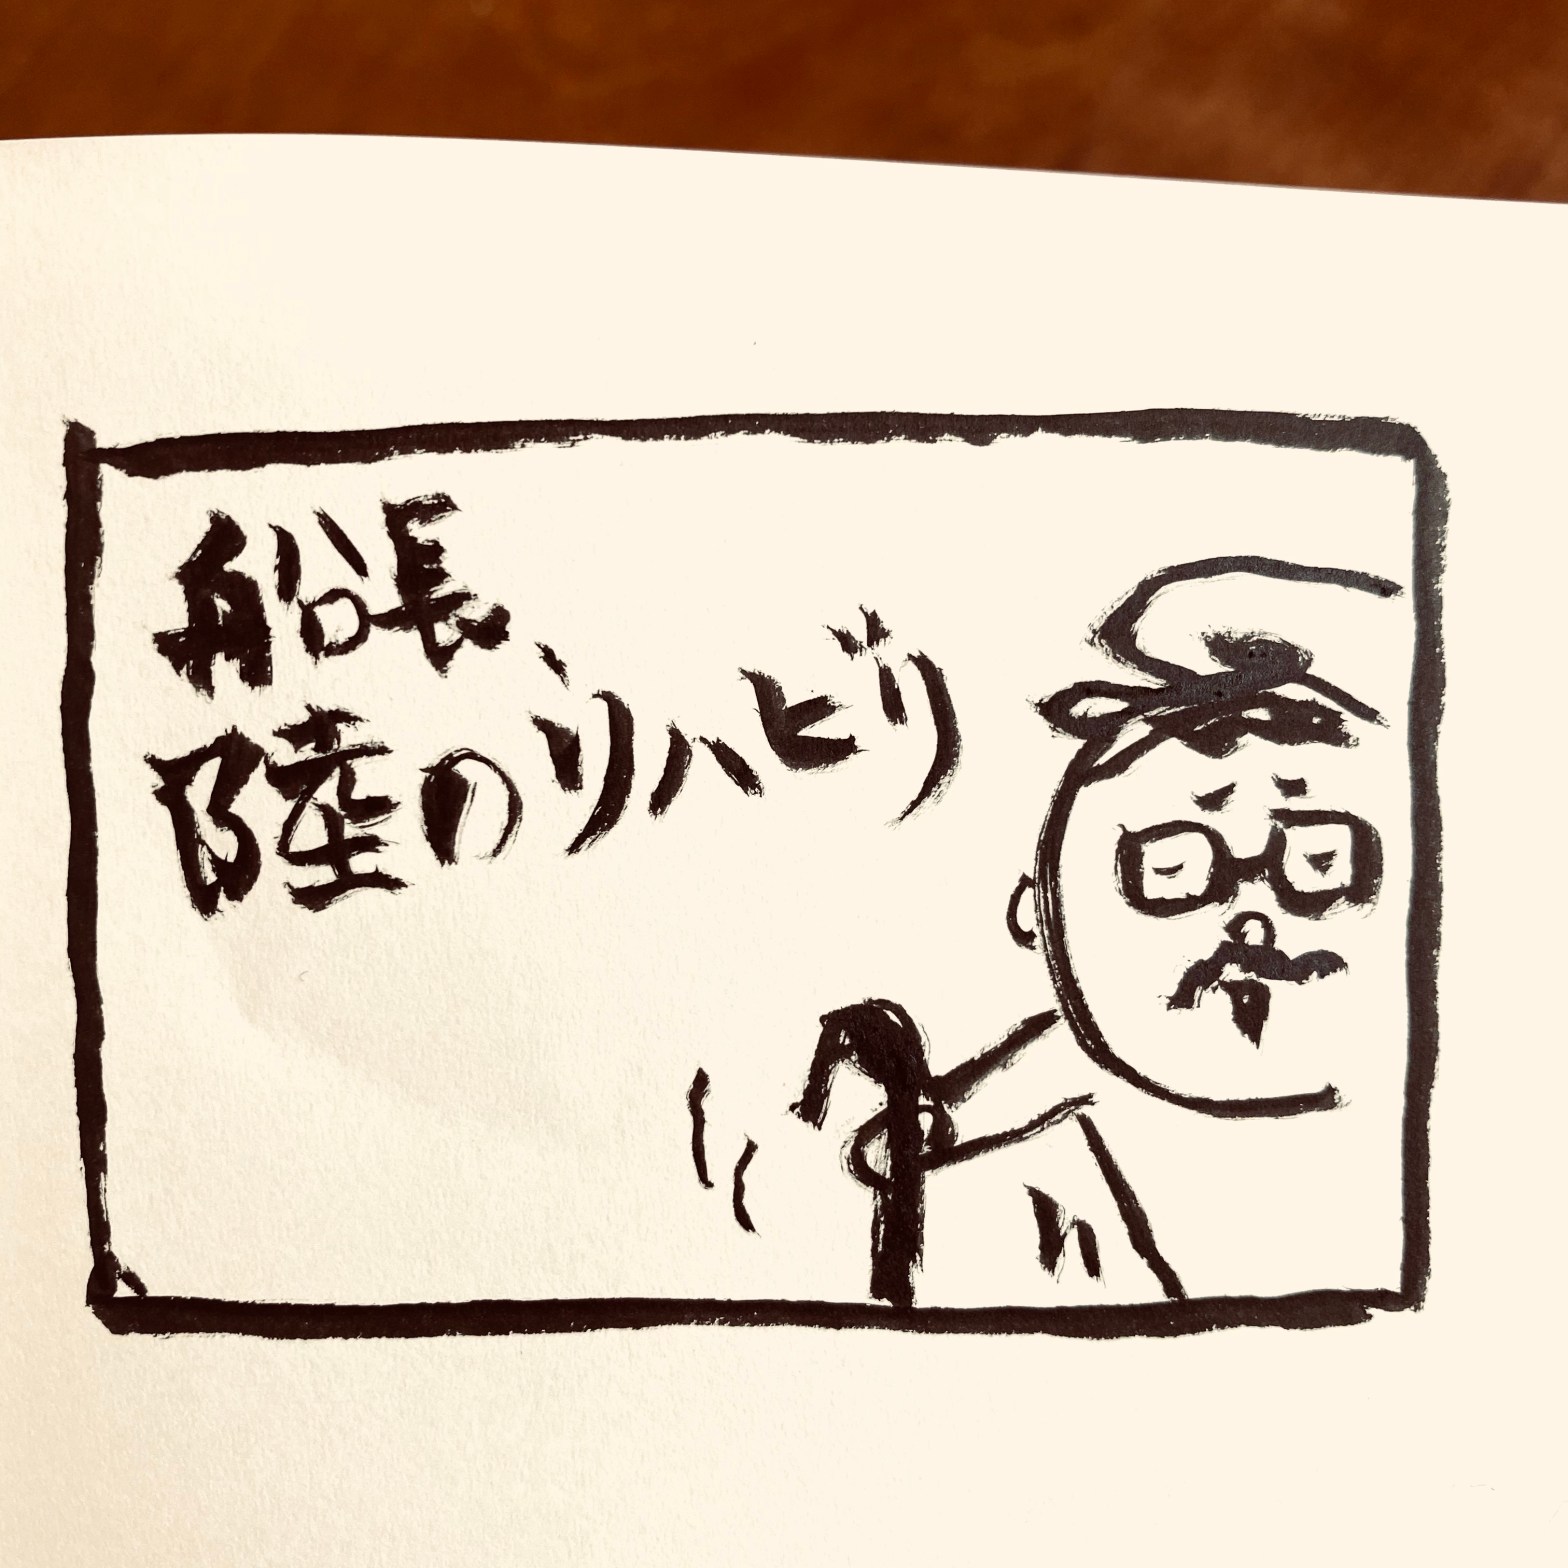 船長、
陸のリハビリ